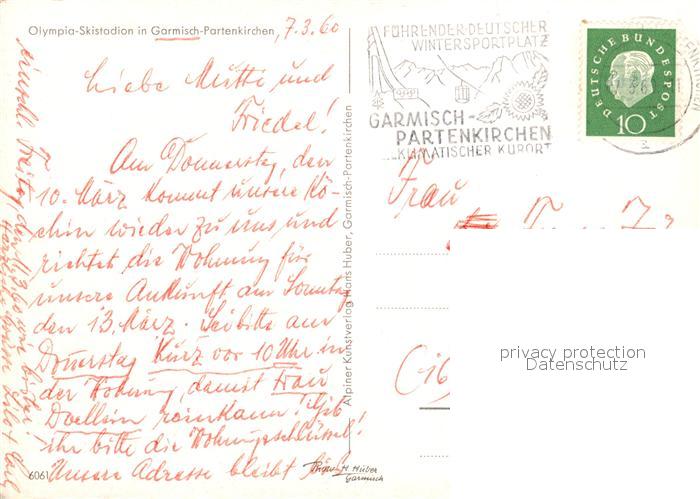 Olympia-Skistadion in Garmisch-Partenkirchen, 7.3.60
Liebe Mutti und
Friedel!
Am Donnerstag, den
10. März kommt unsere Kö-
chin wieder zu uns und
richtet die Wohnung für
unsere Ankunft am Sonntag
den 13. März. Sei bitte am
Donerstag Kurz vor 10 Uhr in
der Wohnung, damit Frau
Doellern reinkann! Gib
ihr bitte die Wohnungsschlüssel!
Unsere Adresse bleibt
6061
H. Huber
Garmisch
Freitag den 11.3.60 wir
Herzliche Grüsse
Alpiner Kunstverlag Hans Huber, Garmisch-Partenkirchen
FÜHRENDER DEUTSCHER
WINTERSPORTPLATZ
GARMISCH-
PARTENKIRCHEN
KLIMATISCHER KURORT
DEUTSCHE BUNDESPOST
10
Frau
privacy protection
Datenschutz